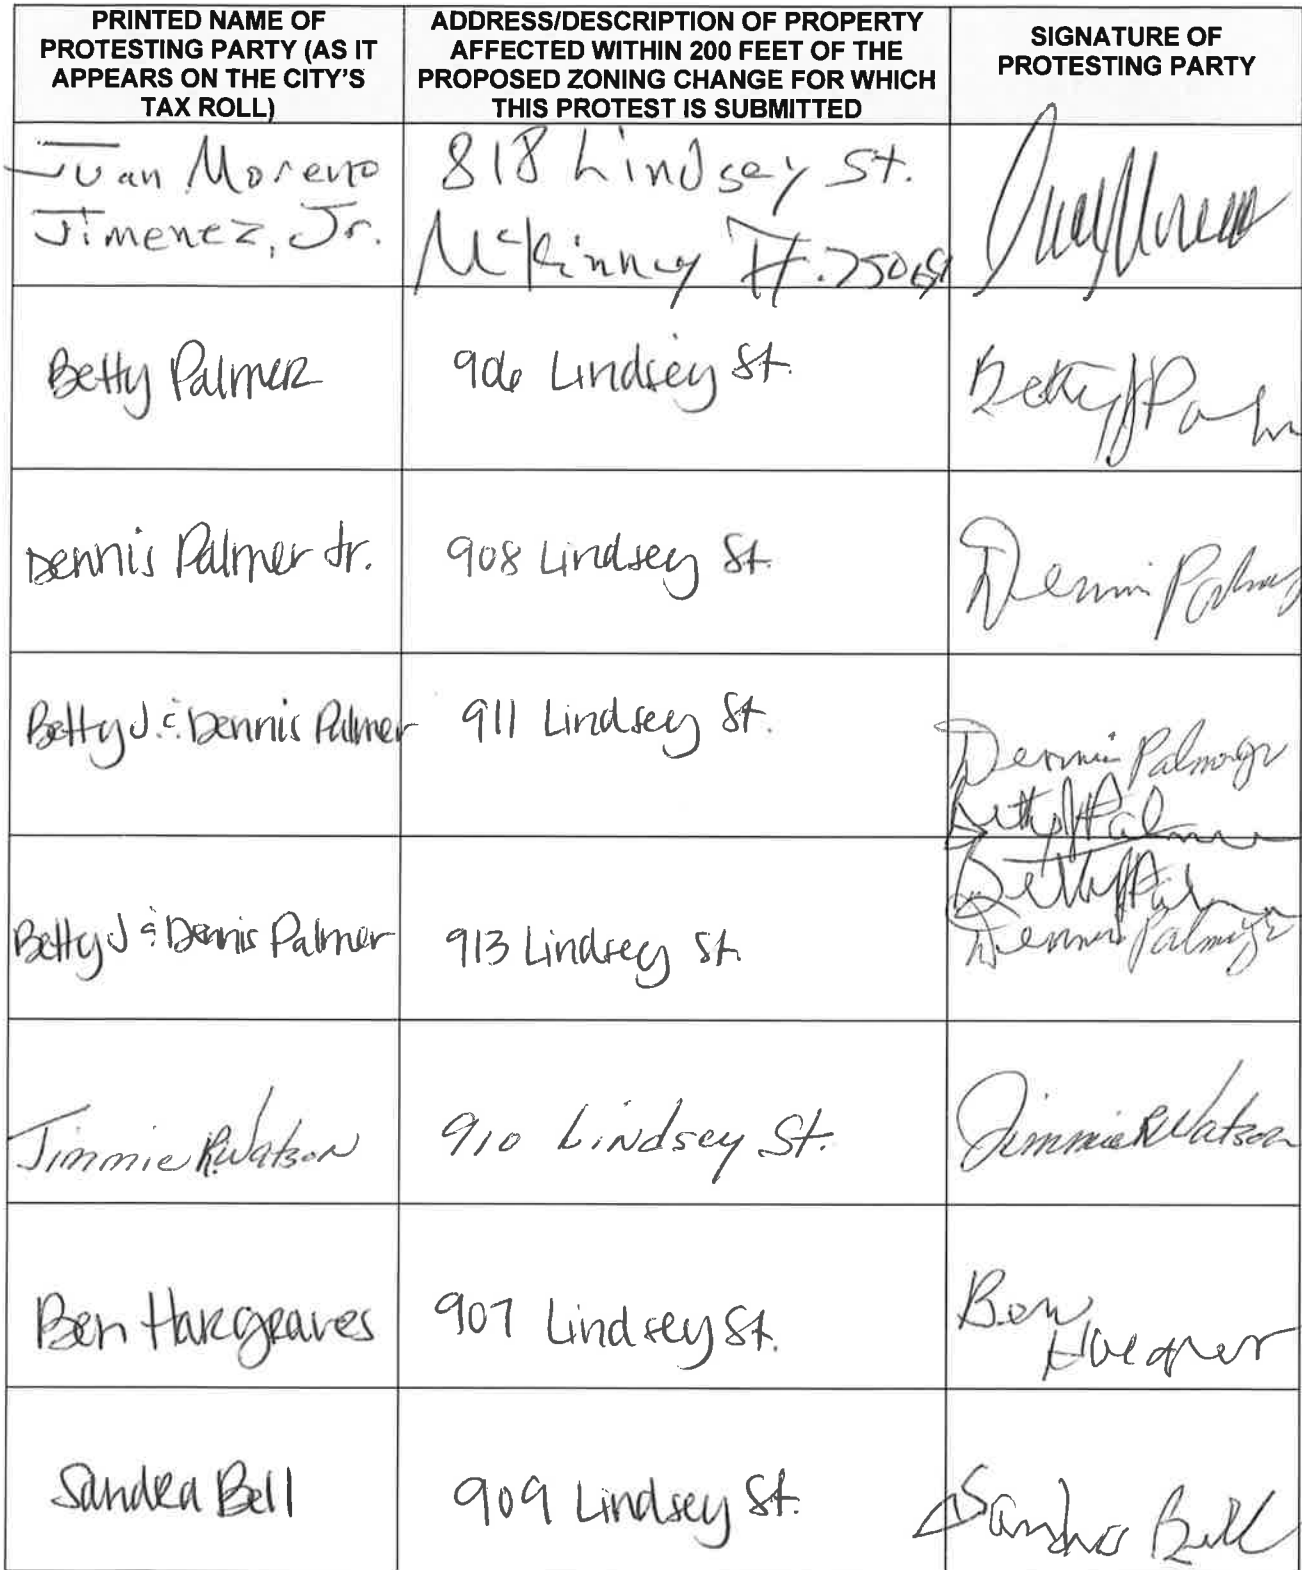 PRINTED NAME OF
PROTESTING PARTY (AS IT
APPEARS ON THE CITY'S
TAX ROLL)
ADDRESS/DESCRIPTION OF PROPERTY
AFFECTED WITHIN 200 FEET OF THE
PROPOSED ZONING CHANGE FOR WHICH
THIS PROTEST IS SUBMITTED
SIGNATURE OF
PROTESTING PARTY
Juan Moreno
Jimenez, Jr.
818 Lindsey St.
McKinney TX. 75069
Betty Palmer
906 Lindsey St.
Betty J Palm
Dennis Palmer Jr.
908 Lindsey St.
Dennis Palmer
Betty J. & Dennis Palmer
911 Lindsey St.
Dennis Palmer Jr
Betty J Palmer
Betty J & Dennis Palmer
913 Lindsey St.
Betty J Palmer
Dennis Palmer Jr
Jimmie R. Watson
910 Lindsey St.
Jimmie R Watson
Ben Hargreaves
907 Lindsey St.
Ben
Sandra Bell
909 Lindsey St.
Sandra Bell